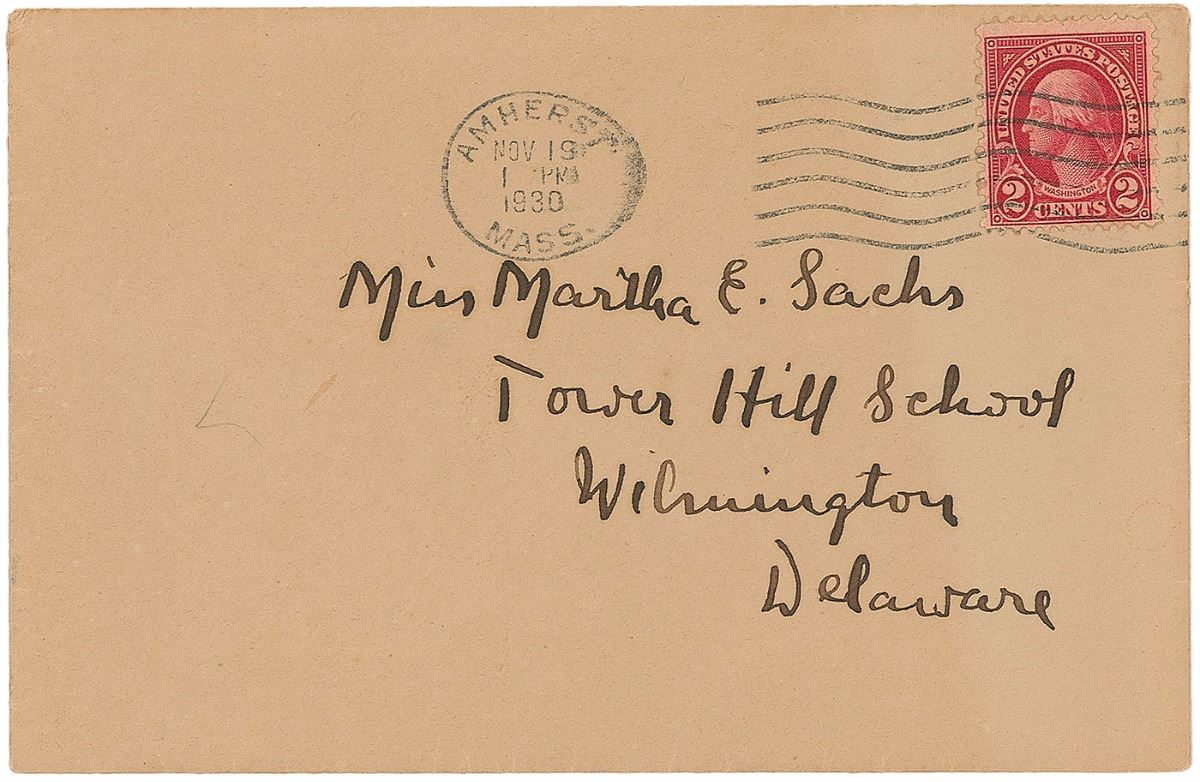 AMHERST.
NOV 19
1 PM
1930
MASS.
UNITED STATES POSTAGE
WASHINGTON
2 CENTS 2
Miss Martha E. Sachs
Tower Hill School
Wilmington
Delaware